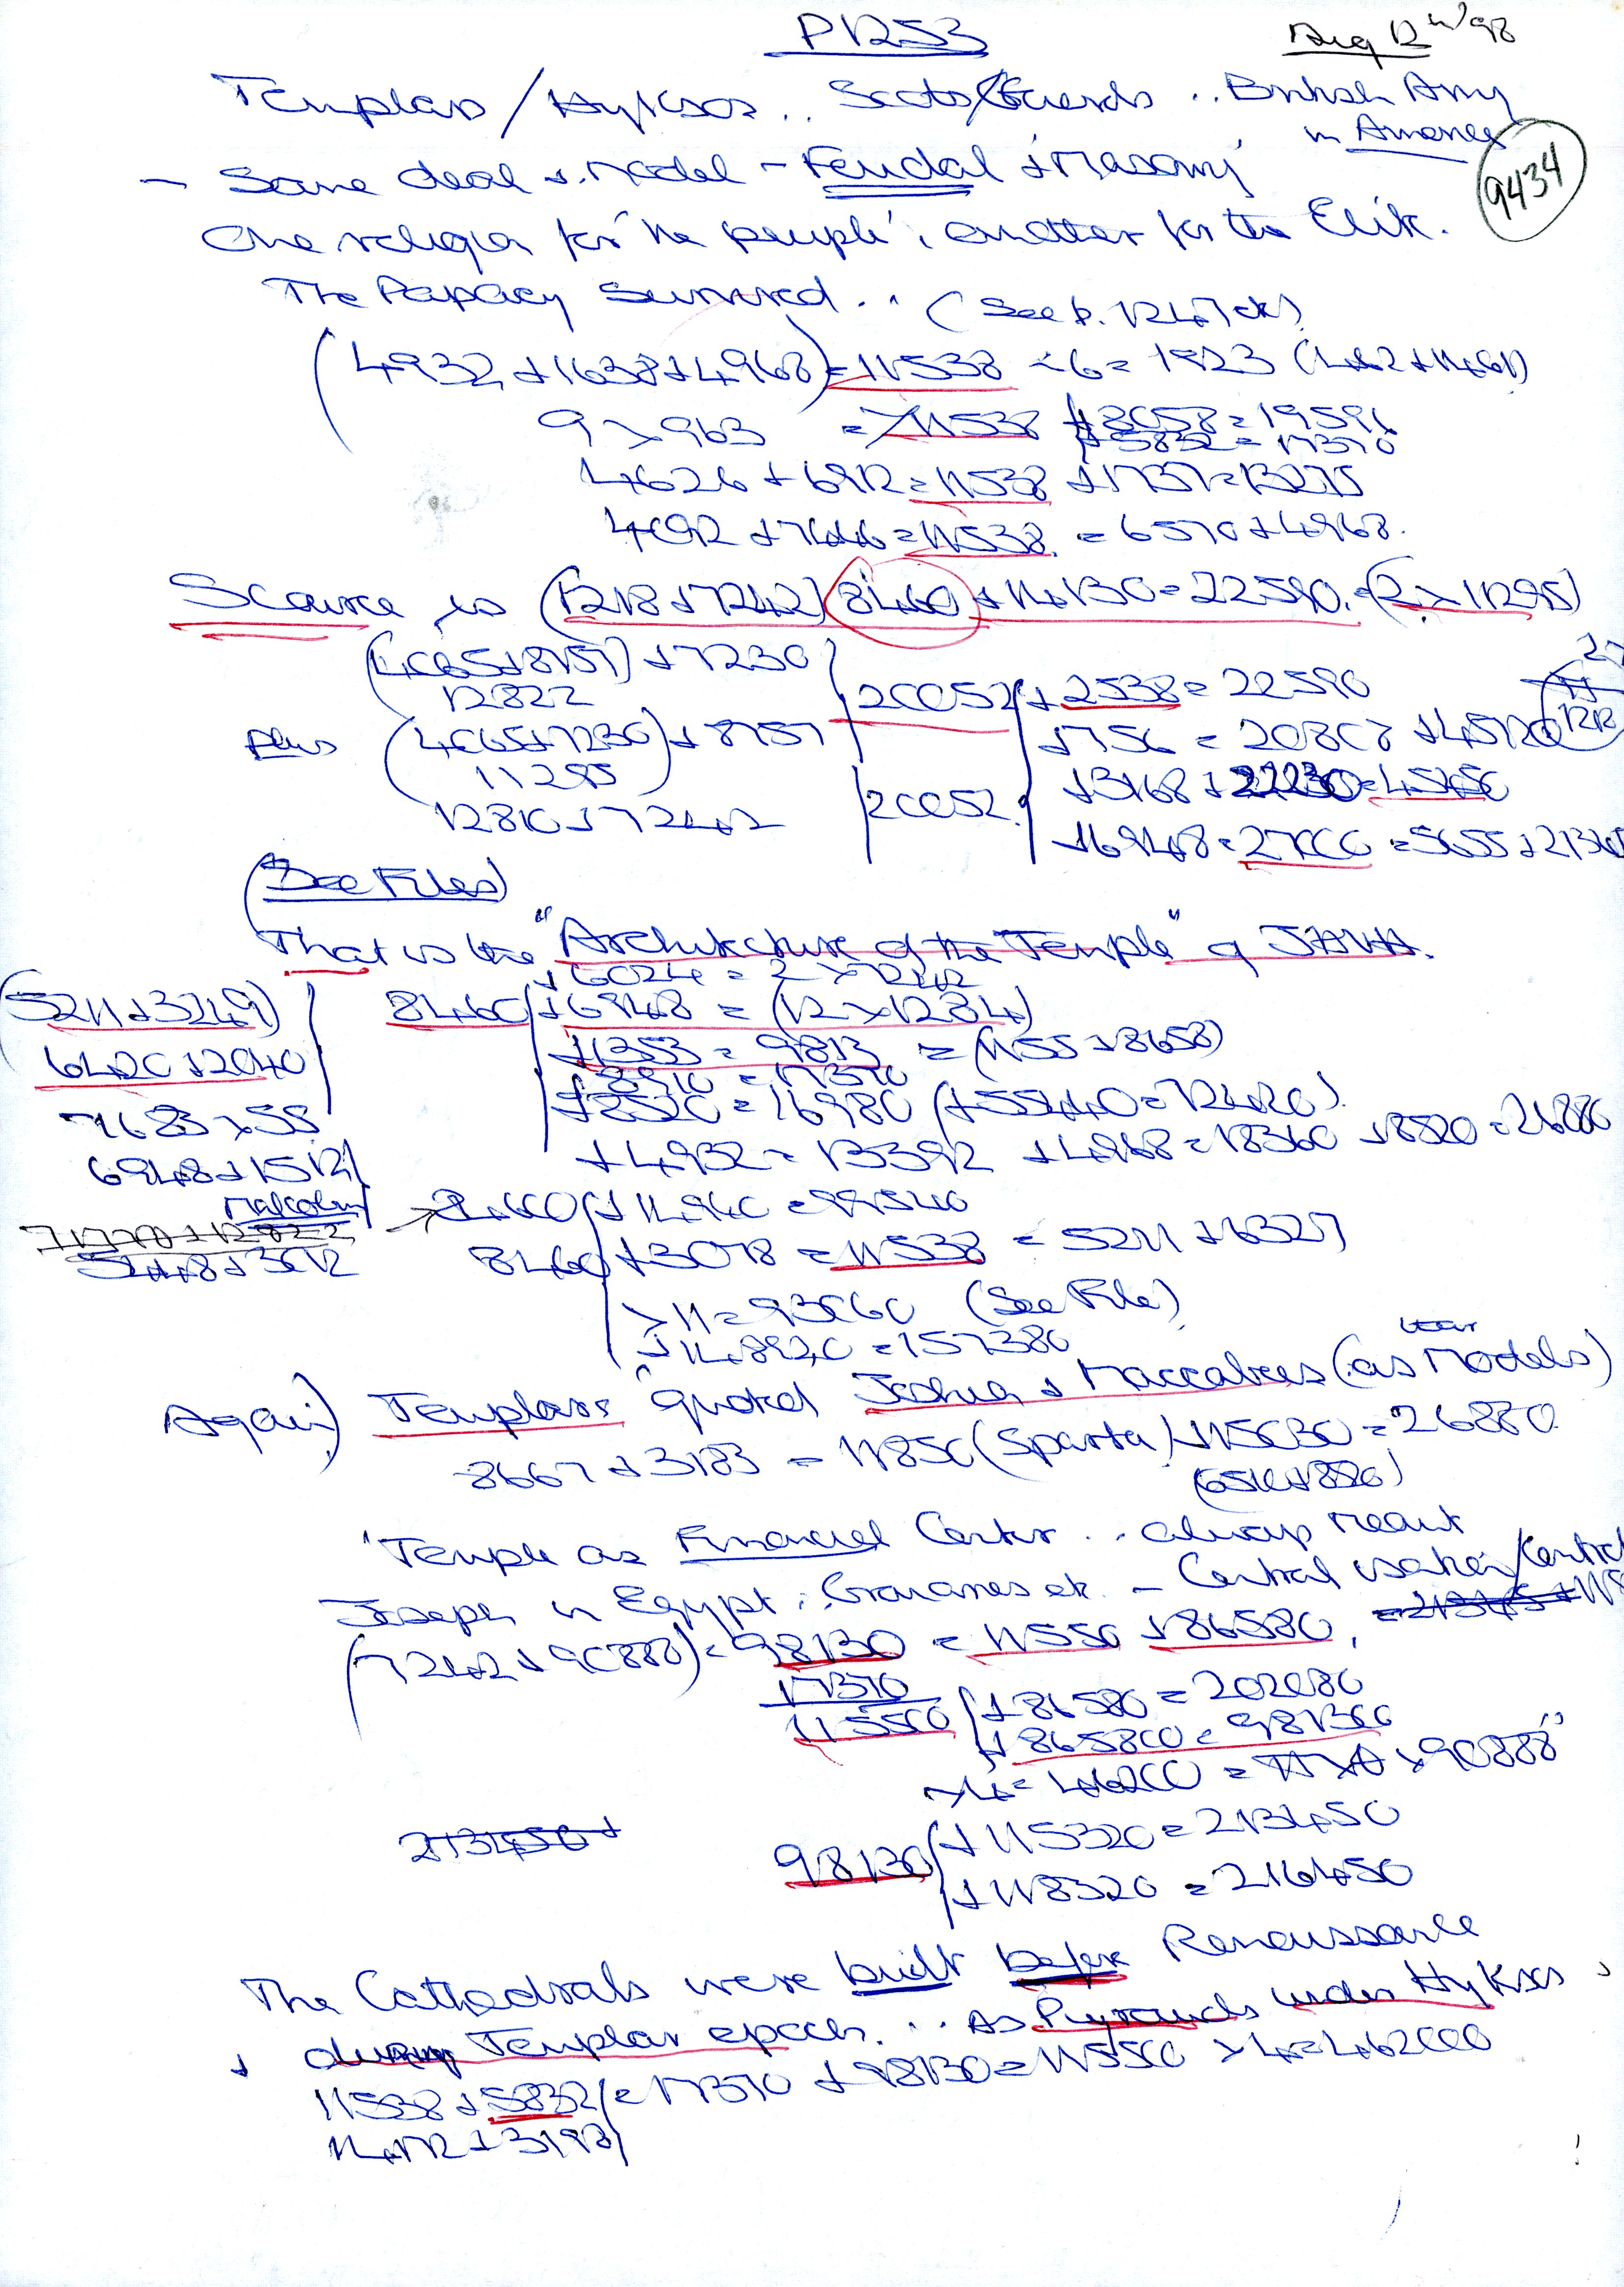 P1253
Aug 12th/98
Templars / Hyksos .. Scots/Guards .. British Army
in America
9434
- Same deal + Model - Feudal + Masonry
One religion for 'the people', another for the Elite.
The Papacy survived .. (See p. 1247 etc)
(4932 + 1638 + 4968) = 11538 ÷ 6 = 1923 (462 + 1461)
9 × 963 = 11538 + 8058 = 19596
+ 5832 = 17370
4626 + 6912 = 11538 + 1737 = 13275
4092 + 7446 = 11538 = 6570 + 4968.
Source is (1218 + 7242) 8460 + 14130 = 22590 = (2 × 11295)
(4065 + 8757) + 7230
12822
20052 + 2538 = 22590
Plus (4065 + 7230) + 8757
11295
+ 756 = 20808 + 45120
12810 + 7242
20052
+ 3168 + 22230 = 45450
+ 6948 = 27000 = 5655 + 21345
(See Files)
That is the "Architecture of the Temple" of
+ 6024 = 2 × 7242
(5211 + 3249)
8460 + 6948 = (12 × 1284)
6420 + 2040
+ 1353 = 9813 = (1155 + 8658)
+ 8910 = 17370
7683 × 55
+ 8520 = 16980 (+ 55440 = 72420)
6948 + 1512
+ 4932 = 13392 + 4968 = 18360 + 8520 = 26880
Malcolm
71770 + 12822
5448 + 3012
8460 + 3078 = 11538 = 5211 + 6327
× 11 = 93060 (See File)
+ 148920 = 157380
Again) Templars "quoted Joshua + Maccabees (as their Models)
8667 + 3183 = 11850 (Sparta) + 15030 = 26880
"Temple as Financial Center .. always meant
Joseph in Egypt, Granaries etc. - Central
(7242 + 90888) = 98130 = 11550 + 86580,
17370
115500 + 86580 = 202080
+ 865800 = 981300
× 4 = 46200 = × 90888"
213450 +
98130 + 115320 = 213450
+ 118320 = 216450
The Cathedrals were built before Renaissance
+ during Templar epoch ... As Pyramids under Hyksos
11538 + 5832 = 17370 + 98130 = 115500 × 4 = 462000
14172 + 3198